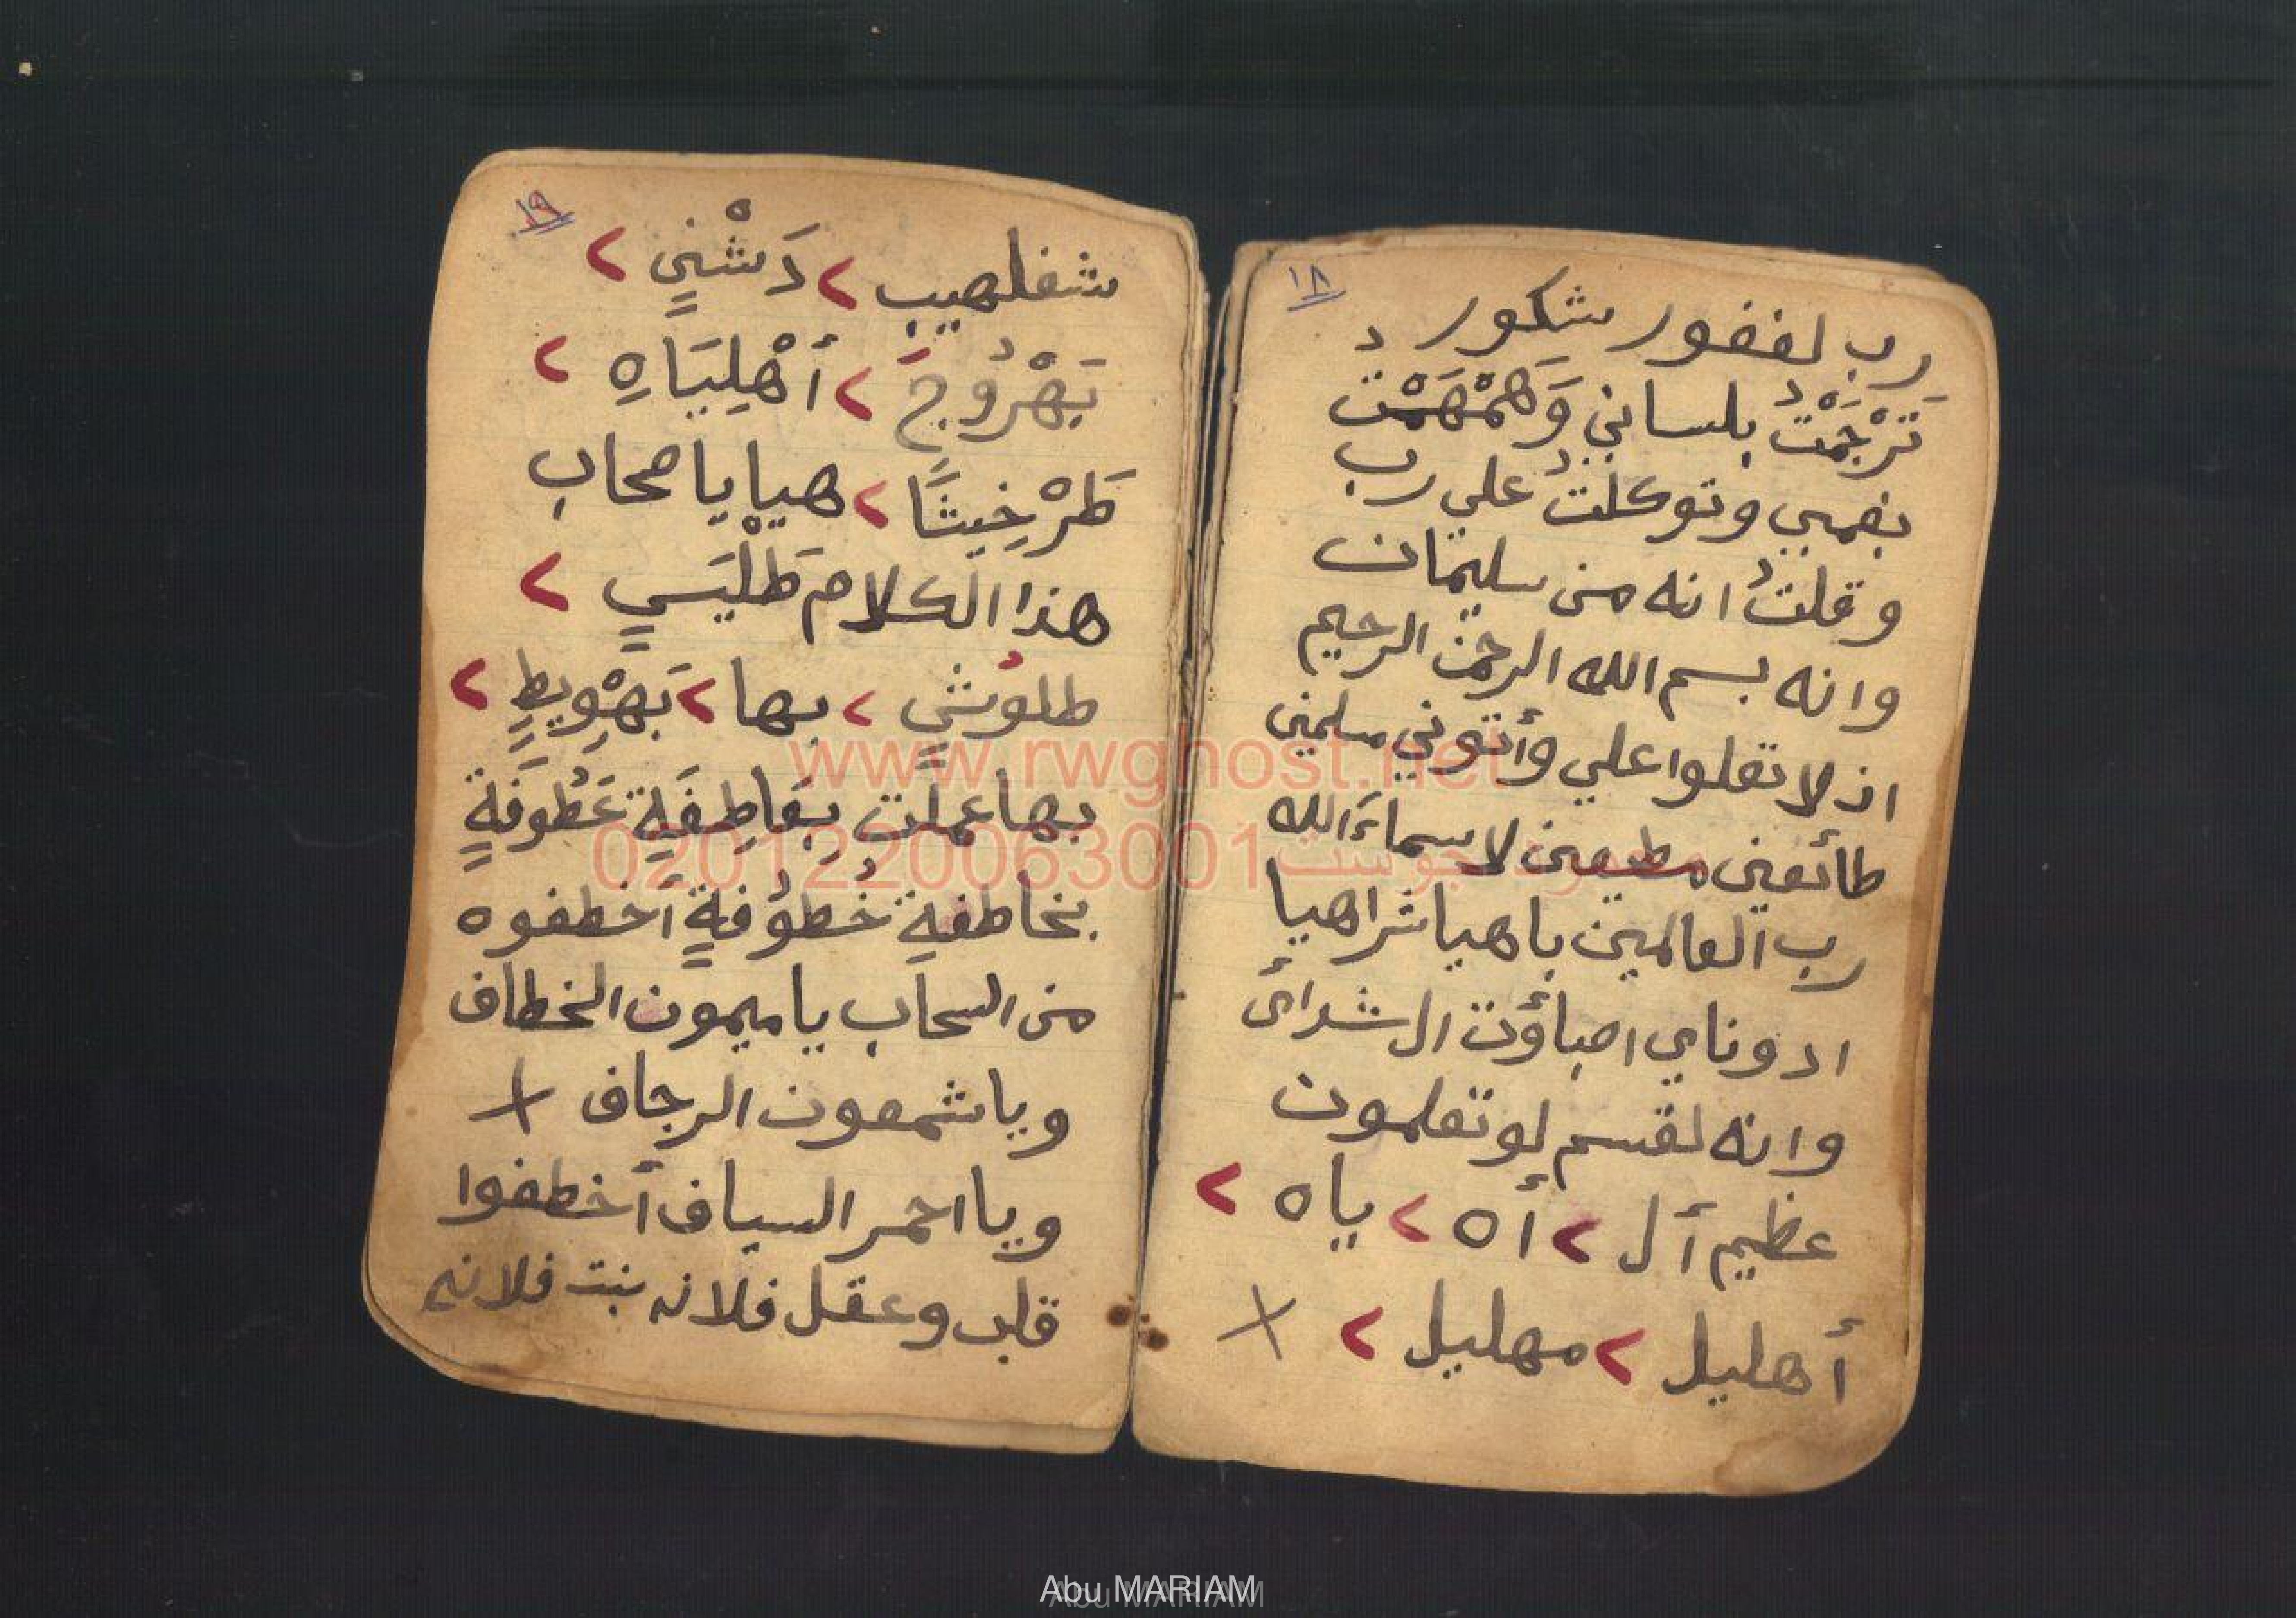 ١٨
رب لغفور شكور
تَرْجَمْتُ بلساني وَهَمْهَمْتُ
بفمي وتوكلتُ علي رب
وقلتُ انه من سليمان
وانه بسم الله الرحمن الرحيم
اذ لا تعلوا علي وأتوني مسلمين
طائعين مطيعين لاسماءَ الله
رب العالمين باهيا شراهيا
ادوناي اصباؤت ال شداىٔ
وانه لقسم لو تعلمون
عظيم آل > أه > ياه >
أهليل > مهليل > X
١٩
شفلهيب > دَمْشٍ >
بَهْرُوجَ > أهْلِيَاهِ >
طَرْخِيثًا > هيا يا صحاب
هذا الكلام طَلْيَسٍ >
طلوُشٍ > بها > بَهْوِيطٍ >
بها عملتِ بِعَاطِفَةِ عَطُوفَةٍ
بخاطفةِ خُطوُفةٍ أخطفوه
من السحاب يا ميمون الخطاف
ويا شمعون الرجاف X
ويا احمر السياف أخطفوا
قلب وعقل فلانه بنت فلانه
www.rwghost.net
محمود جوست 0201220063001
Abu MARIAM